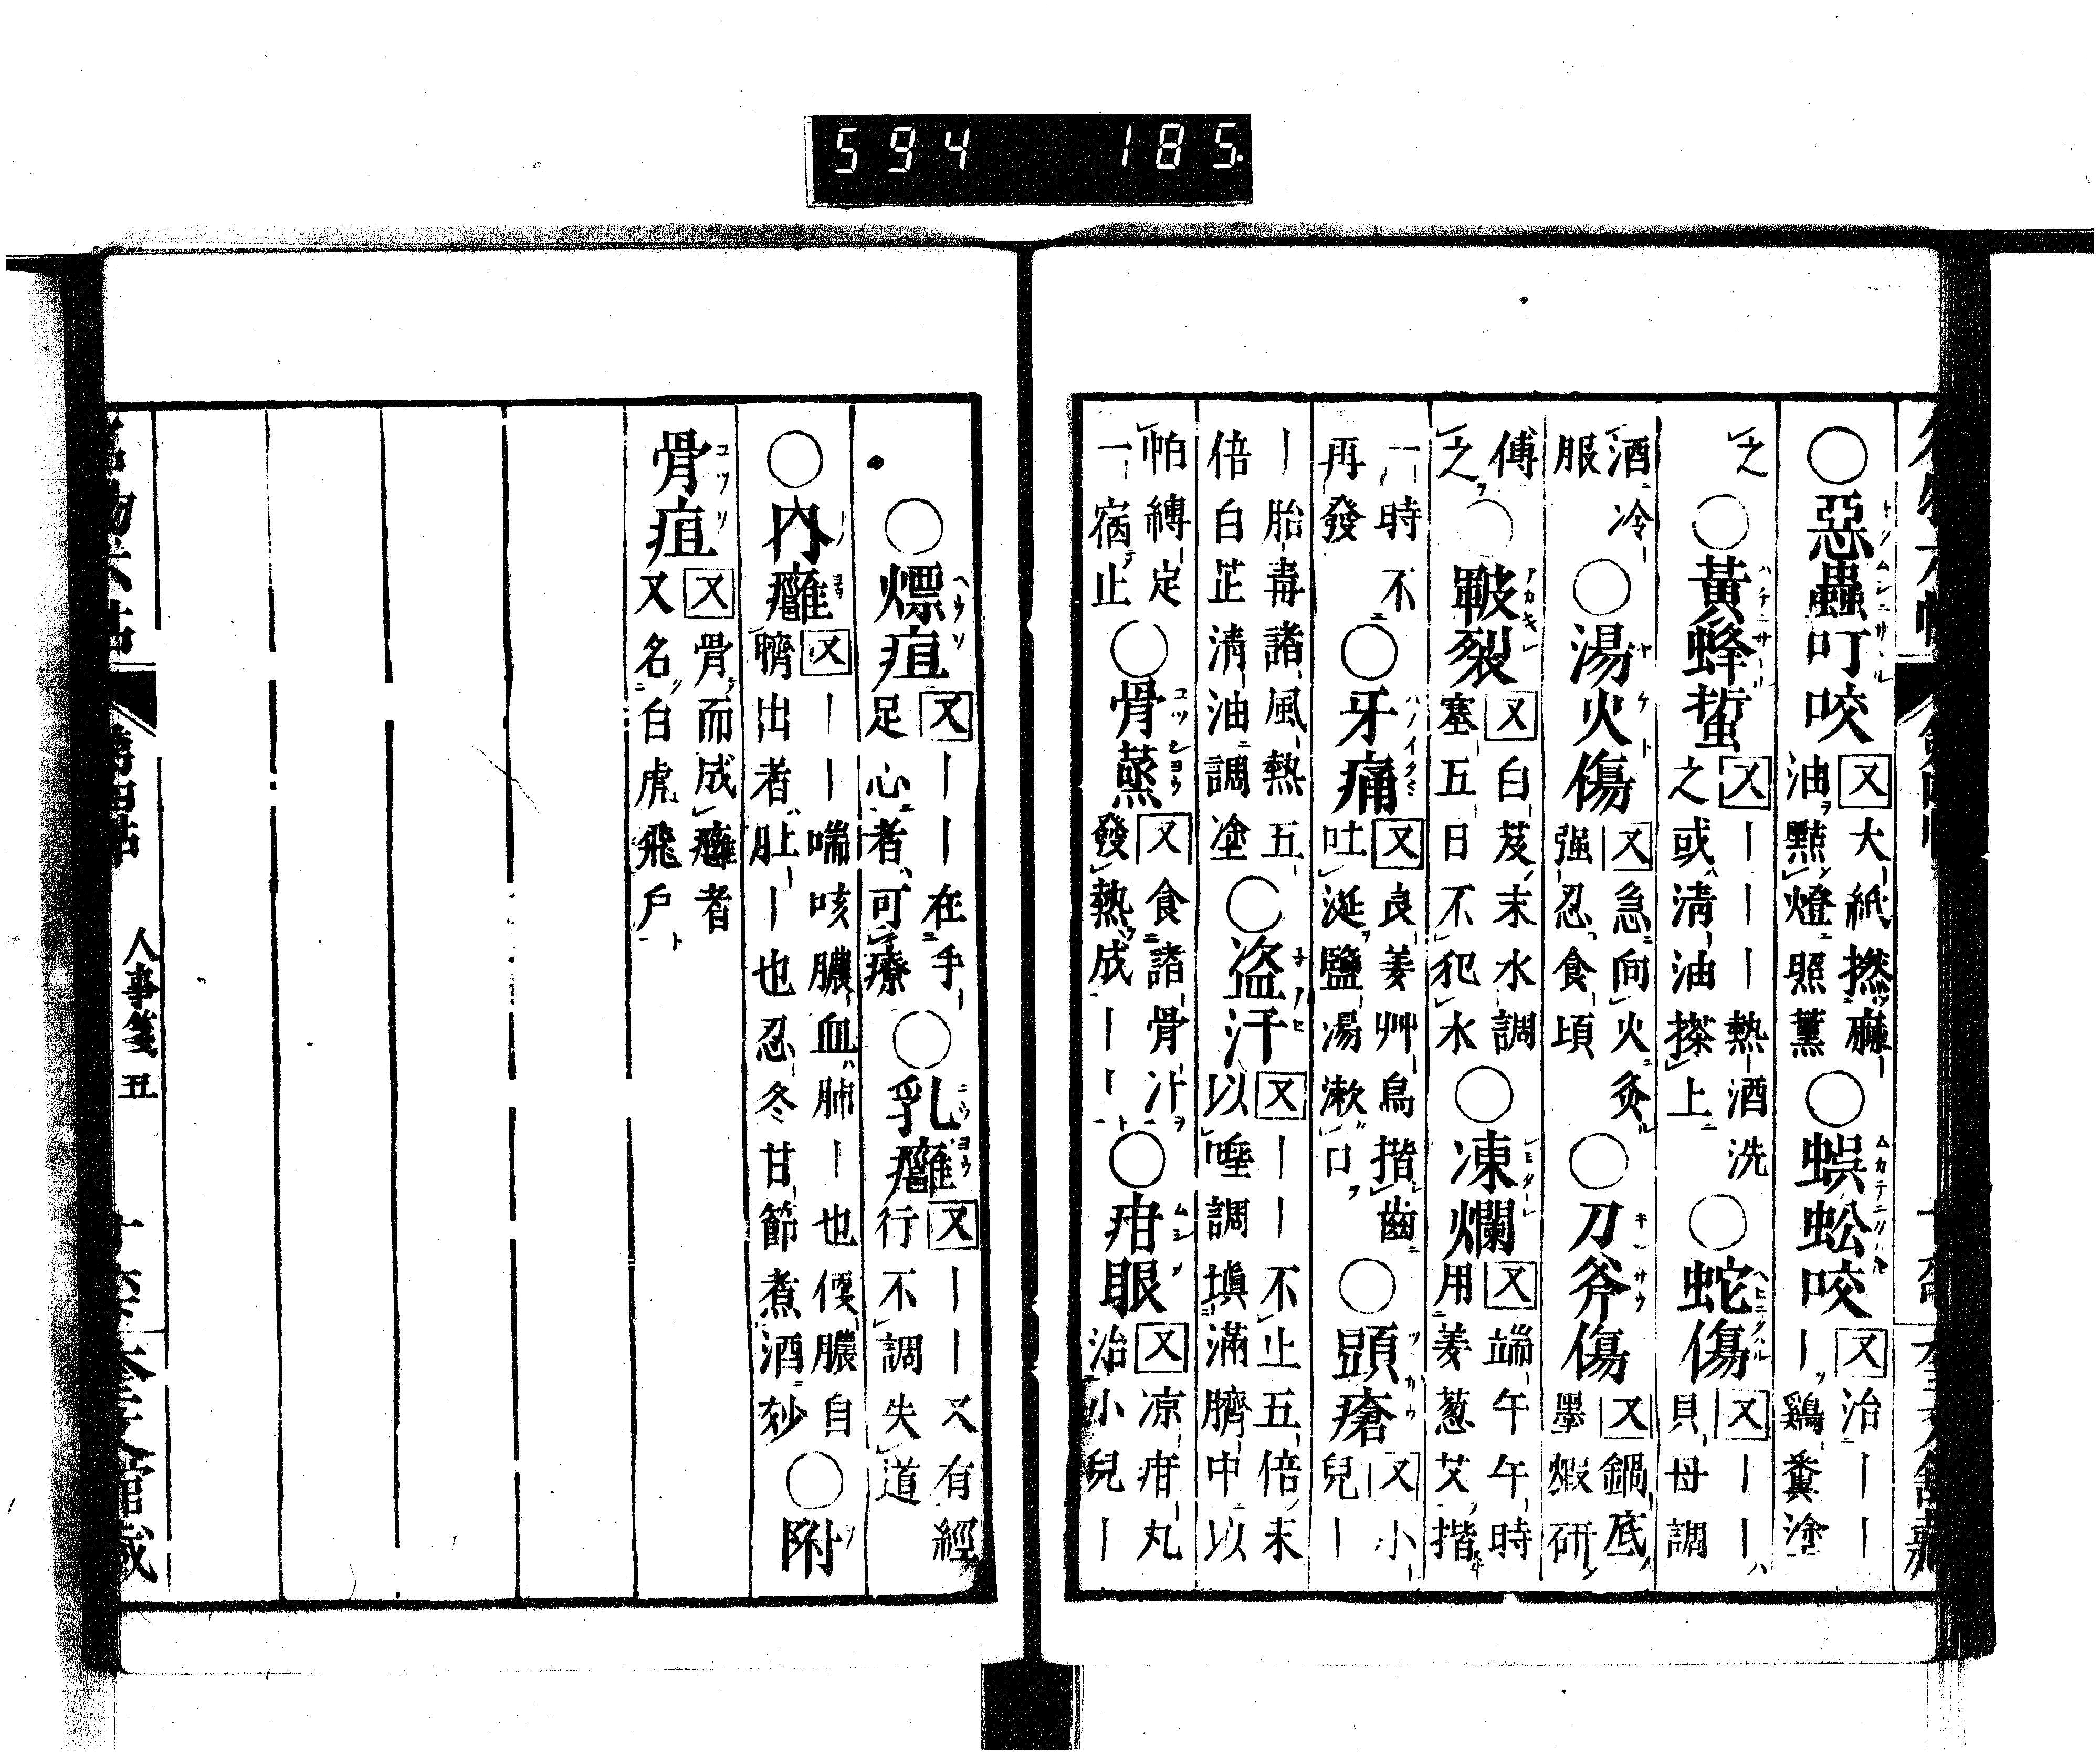 594 185
○惡蟲叮咬 又 大紙撚麻油點燈照薰 ○蜈蚣咬 又 治｜｜｜鷄糞塗
之 ○黃蜂蜇 又 ｜｜｜熱酒洗之或淸油搽上 ○蛇傷 又 ｜｜貝母調
酒冷服 ○湯火傷 又 急向火灸强忍食頃 ○刀斧傷 又 鍋底墨煆研
傅之 ○皸裂 又 白芨末水調塞五日不犯水 ○凍爛 又 端午午時用姜葱艾揩
一時不再發 ○牙痛 又 良姜艸烏揩齒吐涎鹽湯漱口 ○頭瘡 又 小兒｜
｜胎毒諸風熱五倍白芷淸油調塗 ○盜汗 又 ｜｜不止五倍末以唾調塡滿臍中以
帕縛定一宿止 ○骨蒸 又 食諸骨汁發熱成｜｜ ○疳眼 又 凉疳丸治小兒｜
○熛疽 又 ｜｜在手足心者可療 ○乳癰 又 ｜｜又有經行不調失道
○內癰 又 ｜｜喘咳膿血肺｜也便膿自臍出者肚｜也忍冬甘節煮酒妙 ○附
骨疽 又 骨而成癰者又名白虎飛尸
人事箋五